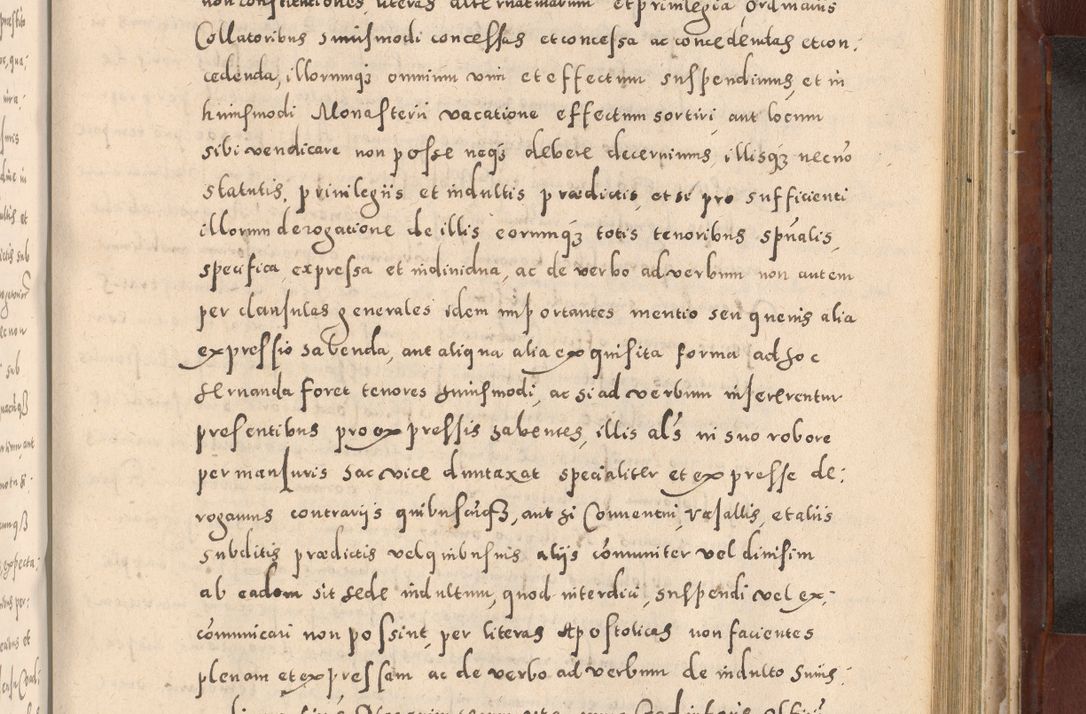 non constitutiones literas alternativarum et privilegia Ordinaris
Collatoribus huiusmodi concessas et concessa ac concedendas et con:
cedenda, illorumq3 omnium vim et effectum suspendimus, et in
huiusmodi Monasterii vacatione effectum sortiri aut locum
sibi vendicare non posse neq3 debere decernimus, illisq3 necno
statutis, privilegiis et indultis praedictis, etsi pro sufficienti
illorum derogatione de illis eorumq3 totis tenoribus spualis,
specifica, expressa et individua, ac de verbo ad verbum non autem
per clausulas generales idem importantes mentio seu quevis alia
expressio habenda, aut aliqua alia exquisita forma ad hoc
servanda foret tenores huiusmodi, ac si ad verbum insererentur
presentibus pro expressis habentes, illis als in suo robore
permansuris hac vice duntaxat specialiter et expresse de:
rogamus contrariis quibuscuq3, aut si Conventui, vasallis, et aliis
subditis praedictis vel quibusvis aliis communiter vel divisim
ab eadem sit sede indultum, quod interdici, suspendi vel ex:
communicari non possint, per literas Apostolicas non facientes
plenam et expressam ac de verbo ad verbum de indulto huius: